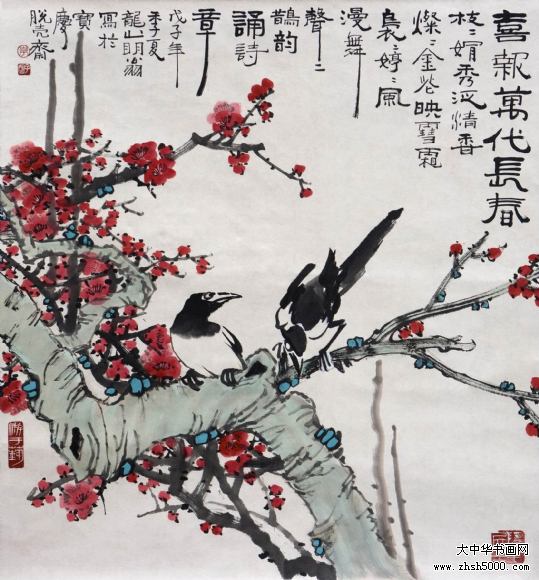 喜報萬代長春
枝ミ娟秀沁情香
燦ミ金花映雪霜
裊ミ婷ミ風
漫舞
聲ミ
鵲韵
誦詩
章
戊子年
季夏
龍山明翁
寫於
寶
慶
脫壳齋
大中华书画网
www.zhsh5000.com